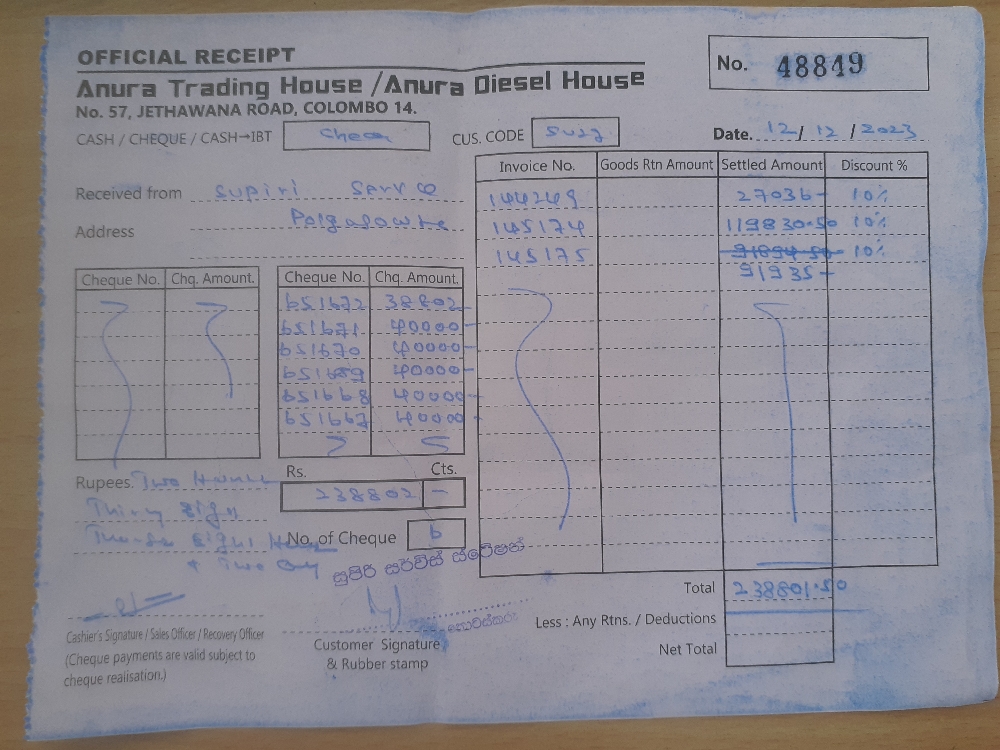 OFFICIAL RECEIPT
Anura Trading House / Anura Diesel House
No. 57, JETHAWANA ROAD, COLOMBO 14.
No. 48849
CASH / CHEQUE / CASH→IBT
CUS. CODE
Date. 12 / 12 / 2023
Received from Supiri
Address
Invoice No. Goods Rtn Amount Settled Amount Discount %
144249 27036- 10%
145174 119830.50 10%
145175 91894.50 10%
91935-
Cheque No. Chq. Amount.
Cheque No. Chq. Amount.
651672 38802-
651671 40000-
651670 40000-
651669 40000-
651668 40000-
651667 40000-
Rupees. Two
Rs. Cts.
238802 -
No. of Cheque 6
සුපිරි සර්විස් ස්ටේෂන්
Total 238801.50
Less : Any Rtns. / Deductions
Net Total
Cashier's Signature / Sales Officer / Recovery Officer
(Cheque payments are valid subject to
cheque realisation.)
Customer Signature
& Rubber stamp